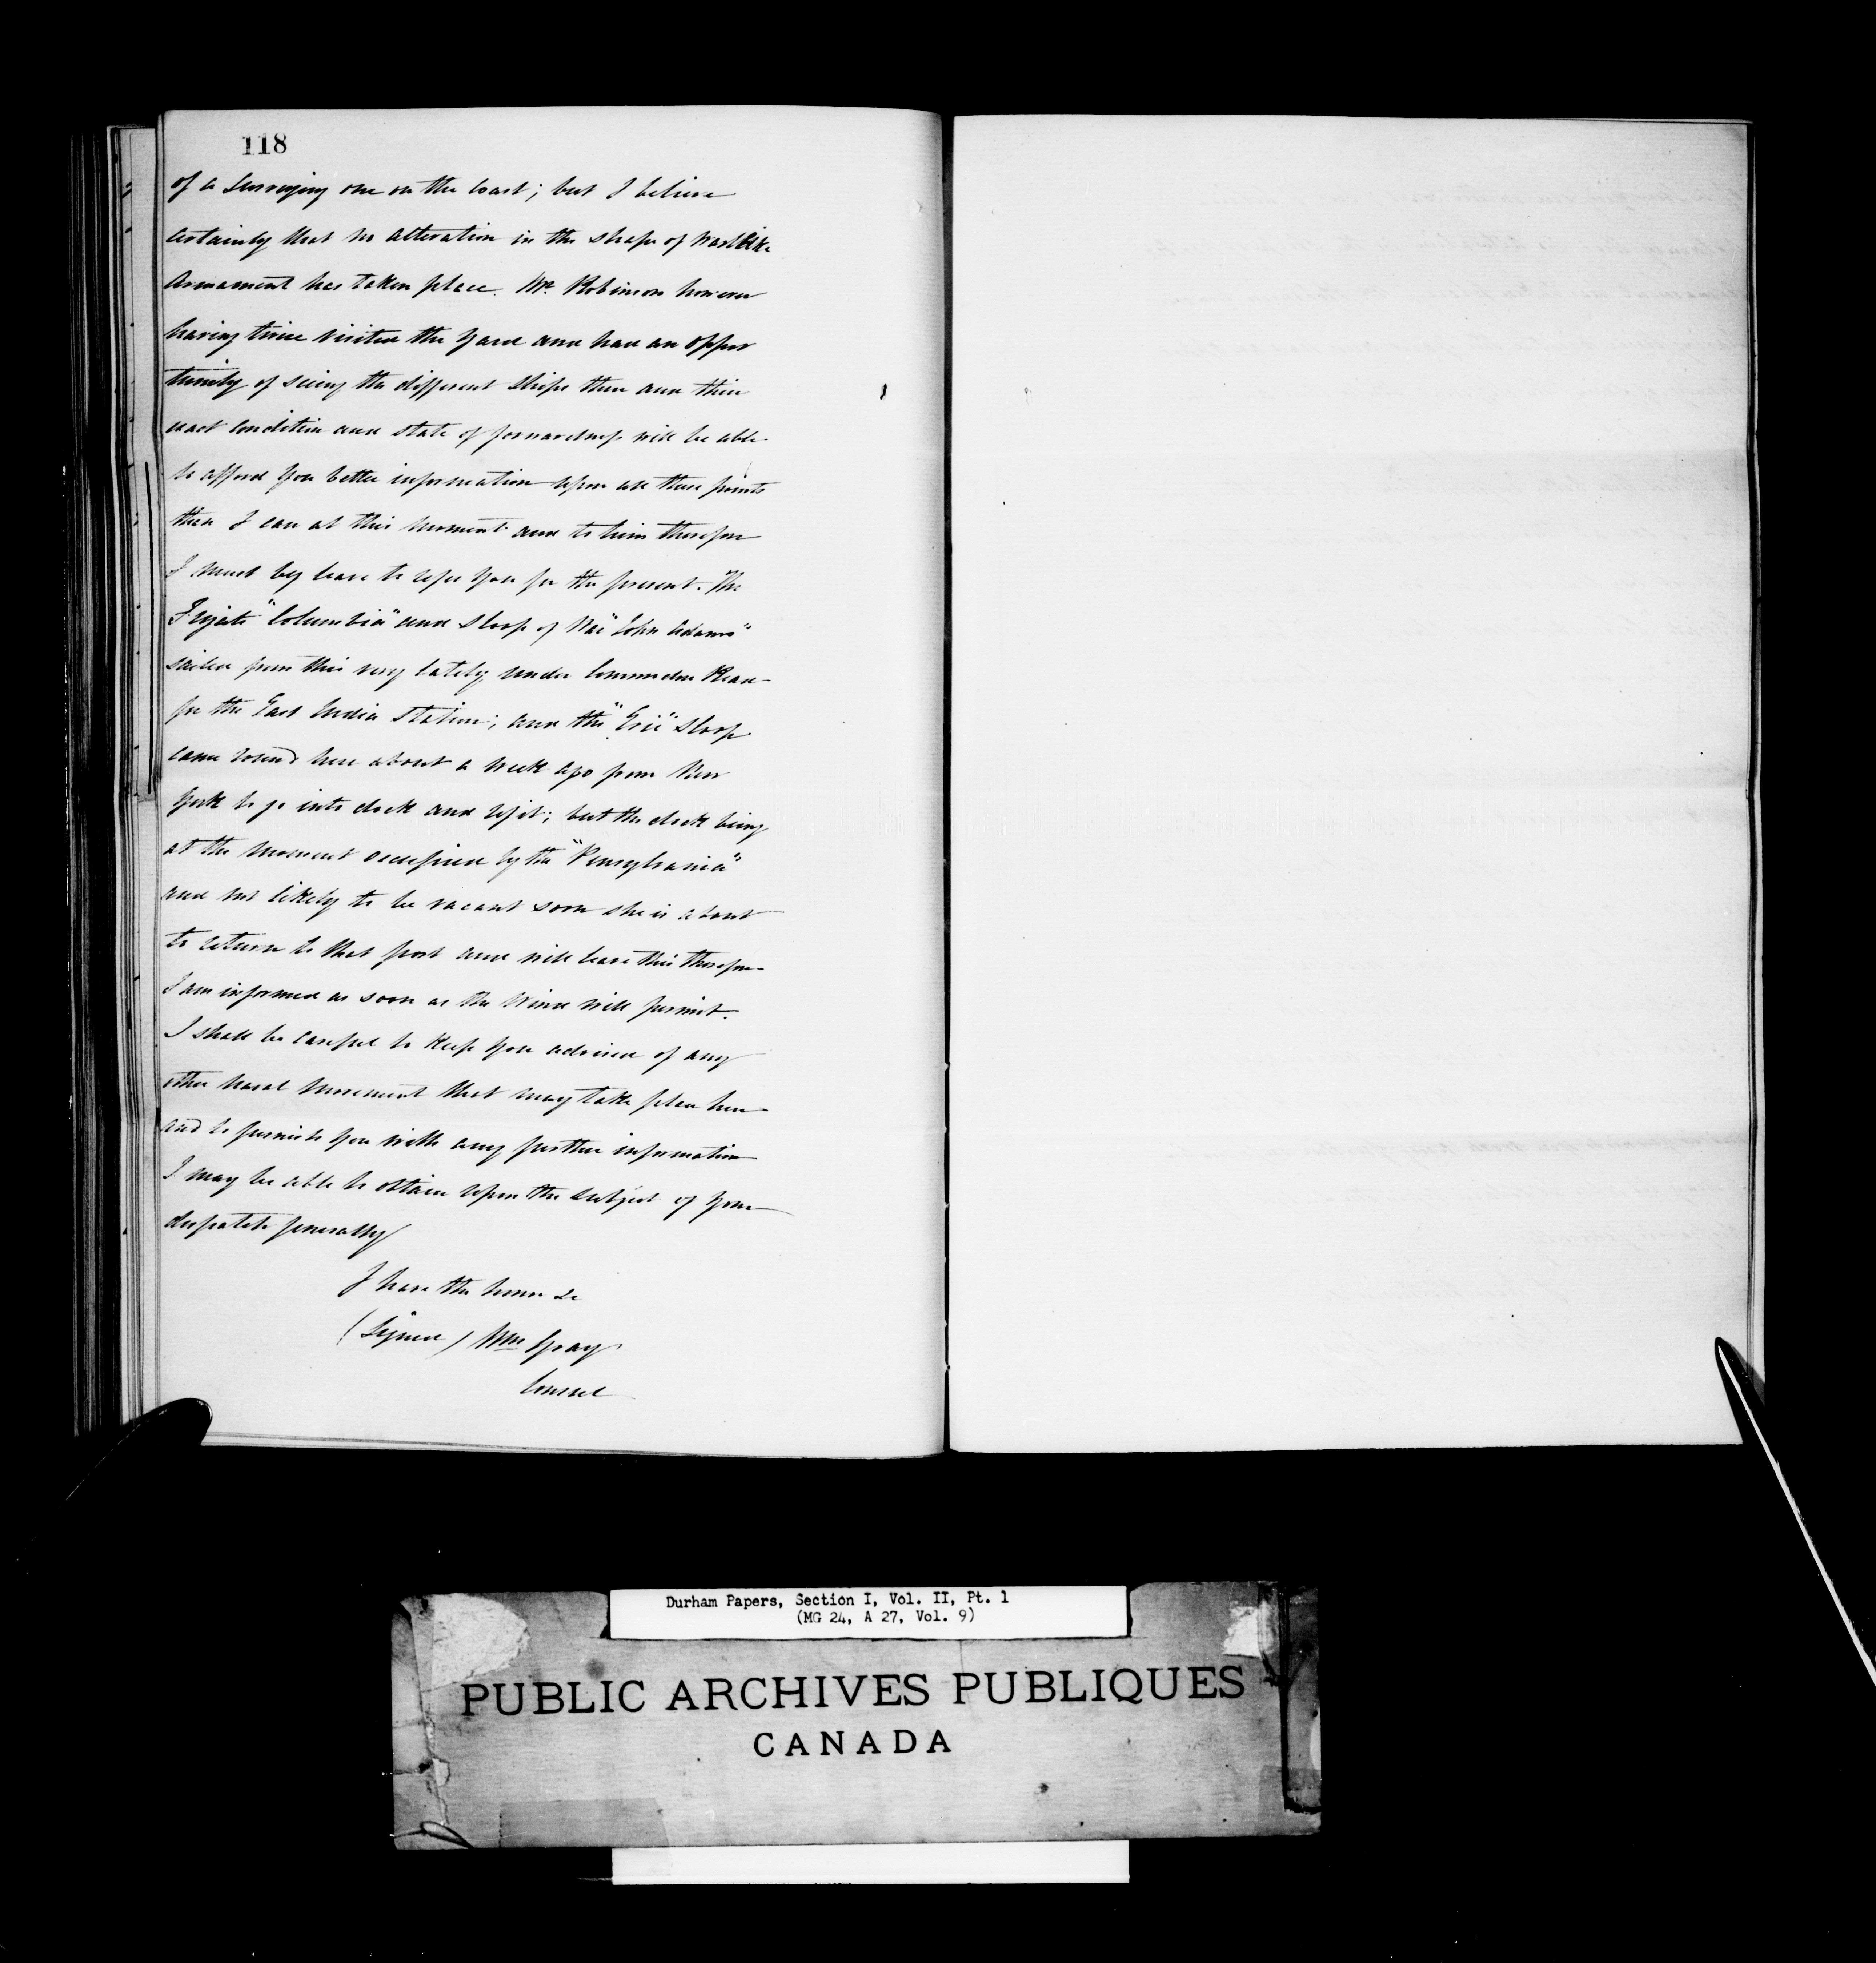 118
of a surveying one on the Coast; but I believe
certainly that no alteration in the shape of Warlike
Armament has taken place. Mr. Robinson however
having twice visited the Yard and had an oppor
tunity of seeing the different Ships there and their
exact condition and state of forwardness will be able
to afford you better information upon all these points
than I can at this moment and to him therefore
I must beg leave to refer you for the present. The
Frigate "Columbia" and Sloop of War "John Adams"
sailed from this very lately under Commodore Read
for the East India Station; and the "Erie" Sloop
came round here about a week ago from New
York to go into dock and refit; but the dock being
at the moment occupied by the "Pensylvania"
and not likely to be vacant soon she is about
to return to that port and will leave this therefore
I am informed as soon as the Wind will permit.
I shall be careful to keep you advised of any
other naval movement that may take place here
and to furnish you with any further information
I may be able to obtain upon the subject of your
despatch generally
I have the honor &c
(Signed) Wm Gray
Consul
Durham Papers, Section I, Vol. II, Pt. 1
(MG 24, A 27, Vol. 9)
PUBLIC ARCHIVES PUBLIQUES
CANADA